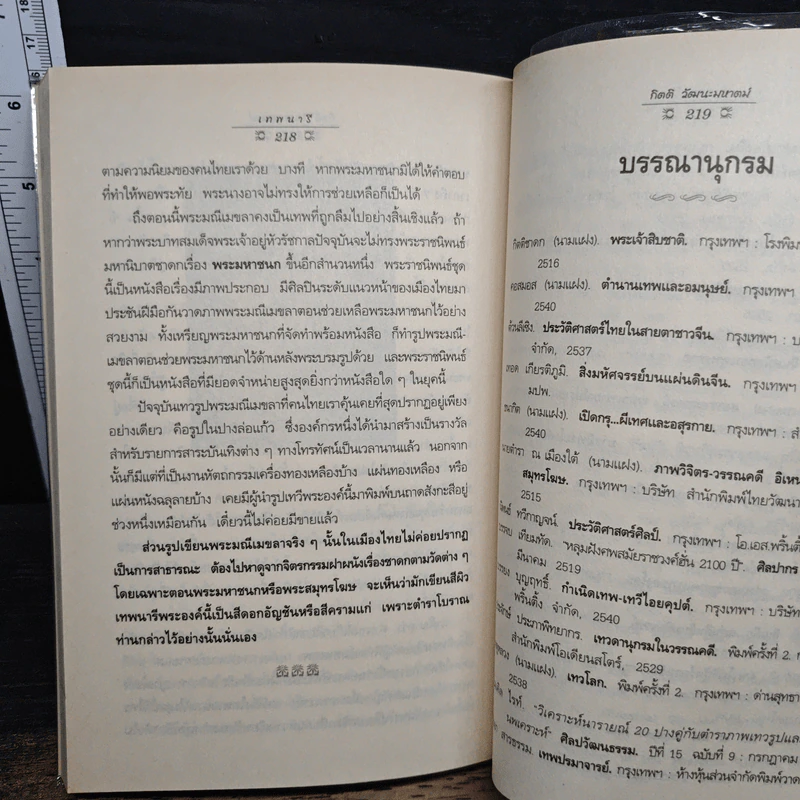 เทพนารี
218
ตามความนิยมของคนไทยเราด้วย บางที หากพระมหาชนกมิได้ให้คำตอบ
ที่ทำให้พอพระทัย พระนางอาจไม่ทรงให้การช่วยเหลือก็เป็นได้
ถึงตอนนี้พระมณีเมขลาคงเป็นเทพที่ถูกลืมไปอย่างสิ้นเชิงแล้ว ถ้า
หากว่าพระบาทสมเด็จพระเจ้าอยู่หัวรัชกาลปัจจุบันจะไม่ทรงพระราชนิพนธ์
มหานิบาตชาดกเรื่อง พระมหาชนก ขึ้นอีกสำนวนหนึ่ง พระราชนิพนธ์ชุด
นี้เป็นหนังสือเรื่องมีภาพประกอบ มีศิลปินระดับแนวหน้าของเมืองไทยมา
ประชันฝีมือกันวาดภาพพระมณีเมขลาตอนช่วยเหลือพระมหาชนกไว้อย่าง
สวยงาม ทั้งเหรียญพระมหาชนกที่จัดทำพร้อมหนังสือ ก็ทำรูปพระมณี-
เมขลาตอนช่วยพระมหาชนกไว้ด้านหลังพระบรมรูปด้วย และพระราชนิพนธ์
ชุดนี้ก็เป็นหนังสือที่มียอดจำหน่ายสูงสุดยิ่งกว่าหนังสือใด ๆ ในยุคนี้
ปัจจุบันเทวรูปพระมณีเมขลาที่คนไทยเราคุ้นเคยที่สุดปรากฏอยู่เพียง
อย่างเดียว คือรูปในปางล่อแก้ว ซึ่งองค์กรหนึ่งได้นำมาสร้างเป็นรางวัล
สำหรับรายการสาระบันเทิงต่าง ๆ ทางโทรทัศน์เป็นเวลานานแล้ว นอกจาก
นั้นก็มีแต่ที่เป็นงานหัตถกรรมเครื่องทองเหลืองบ้าง แผ่นทองเหลือง หรือ
แผ่นหนังฉลุลายบ้าง เคยมีผู้นำรูปเทวีพระองค์นี้มาพิมพ์บนถาดสังกะสีอยู่
ช่วงหนึ่งเหมือนกัน เดี๋ยวนี้ไม่ค่อยมีขายแล้ว
ส่วนรูปเขียนพระมณีเมขลาจริง ๆ นั้นในเมืองไทยไม่ค่อยปรากฏ
เป็นการสาธารณะ ต้องไปหาดูจากจิตรกรรมฝาผนังเรื่องชาดกตามวัดต่าง ๆ
โดยเฉพาะตอนพระมหาชนกหรือพระสมุทรโฆษ จะเห็นว่ามักเขียนสีผิว
เทพนารีพระองค์นี้เป็นสีดอกอัญชันหรือสีครามแก่ เพราะตำราโบราณ
ท่านกล่าวไว้อย่างนั้นนั่นเอง
กิตติ วัฒนะมหาตม์
219
บรรณานุกรม
กิตติชาดก (นามแฝง). พระเจ้าสิบชาติ. กรุงเทพฯ : โรงพิม
2516
คอสมอส (นามแฝง). ตำนานเทพและอมนุษย์. กรุงเทพฯ
2540
ประวัติศาสตร์ไทยในสายตาชาวจีน. กรุงเทพฯ : บ
จำกัด, 2537
เกียรติภูมิ. สิ่งมหัศจรรย์บนแผ่นดินจีน. กรุงเทพฯ
มปพ.
(นามแฝง). เปิดกรุ...ผีเทศและอสุรกาย. กรุงเทพฯ : สำ
2540
ณ เมืองใต้ (นามแฝง). ภาพวิจิตร-วรรณคดี อิเหน
สมุทรโฆษ. กรุงเทพฯ : บริษัท สำนักพิมพ์ไทยวัฒนา
2515
ทวีกาญจน์. ประวัติศาสตร์ศิลป์. กรุงเทพฯ : โอ.เอส.พริ้นติ้
เทียมทัด. "หลุมฝังศพสมัยราชวงศ์ฮั่น 2100 ปี". ศิลปากร
มีนาคม 2519
บุญฤทธิ์. กำเนิดเทพ-เทวีไอยคุปต์. กรุงเทพฯ : บริษัท
พริ้นติ้ง จำกัด, 2540
ประภาพิทยากร. เทวดานุกรมในวรรณคดี. พิมพ์ครั้งที่ 2. ก
สำนักพิมพ์โอเดียนสโตร์, 2529
(นามแฝง). เทวโลก. พิมพ์ครั้งที่ 2. กรุงเทพฯ : ด่านสุทธา
2538
ไรท์. "วิเคราะห์นารายณ์ 20 ปางคู่กับตำราภาพเทวรูปและ
นพเคราะห์" ศิลปวัฒนธรรม. ปีที่ 15 ฉบับที่ 9 : กรกฎาคม
สารธรรม. เทพปรมาจารย์. กรุงเทพฯ : ห้างหุ้นส่วนจำกัดพิมพ์วาด